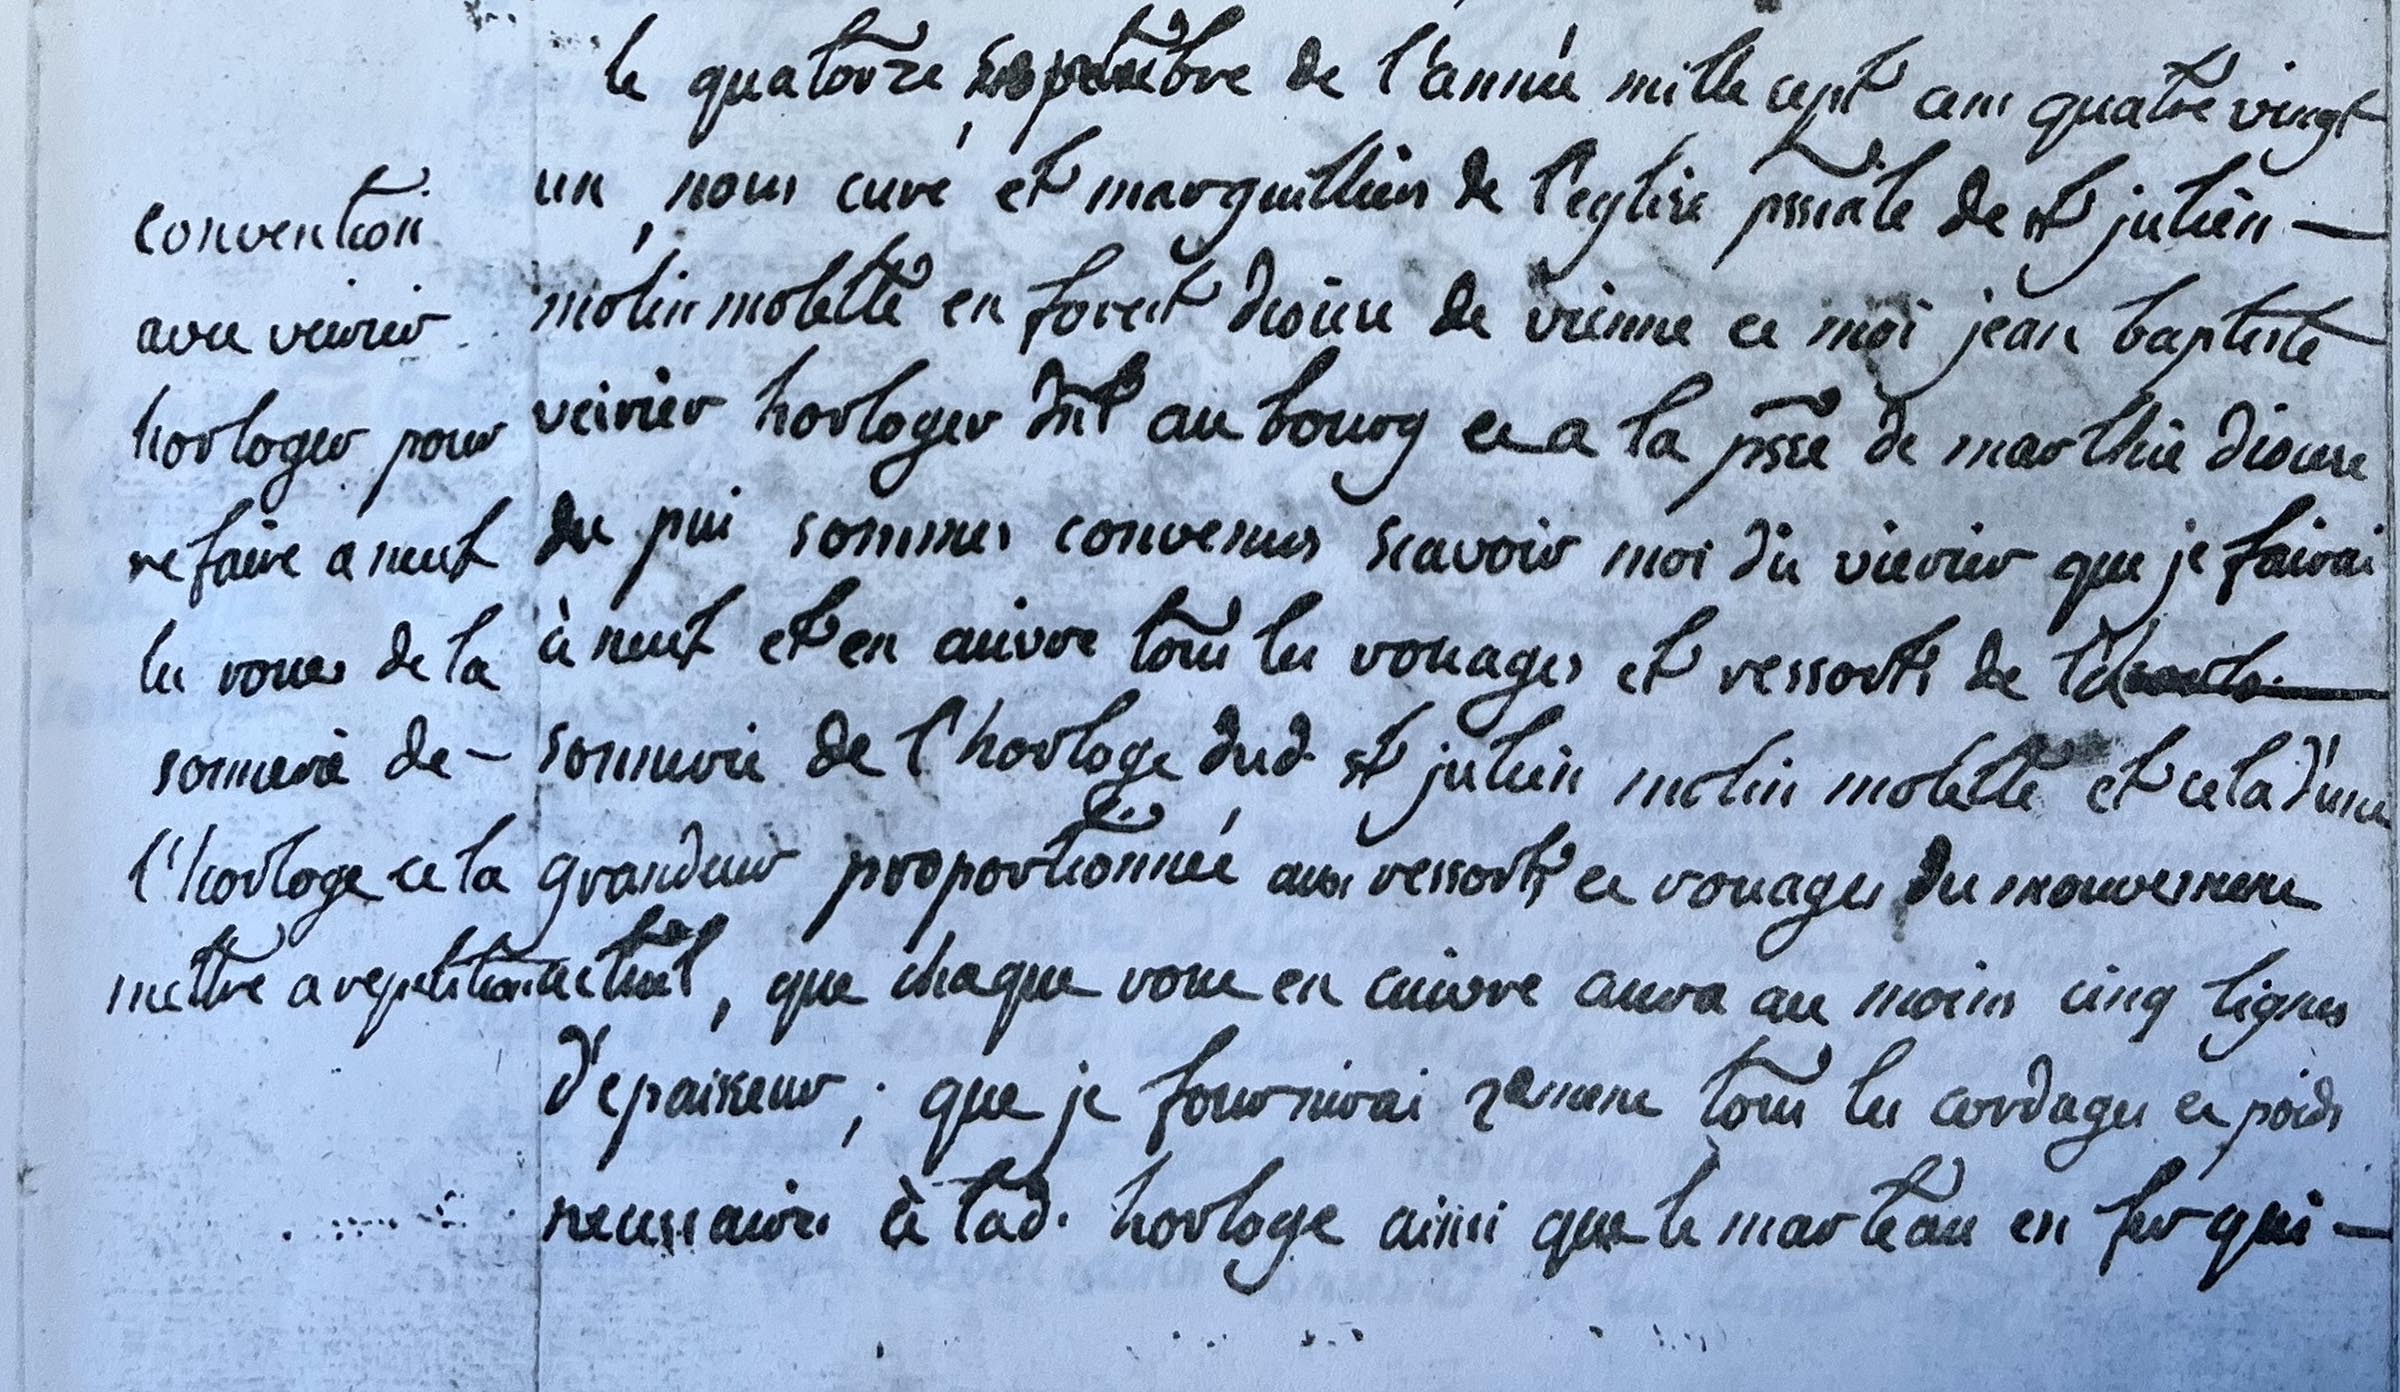 le quatorze septembre de l'année mille cept cent quatre vingt
un, nous curé et marguilliers de l'eglise pssiale de st julien -
molin molette en forest diocese de vienne et moi jean baptiste
veirier horloger dnt au bourg et a la psse de marlhie diocese
du pui sommes convenus scavoir moi dit vierier que je fairai
à neuf et en cuivre tous les rouages et ressorts de
sonnerie de l'horloge dud. st julien molin molette et cela d'une
grandeur proportionnée aux ressorts et rouages du mouvement
actuel, que chaque roue en cuivre aura au moins cinq lignes
d'epaisseur ; que je fournirai tous les cordages et poids
necessaires à lad. horloge ainsi que le marteau en fer qui -
convention
avec veirier
horloger pour
refaire a neuf
les roues de la
sonnerie de -
l'horloge et la
mettre a repetition